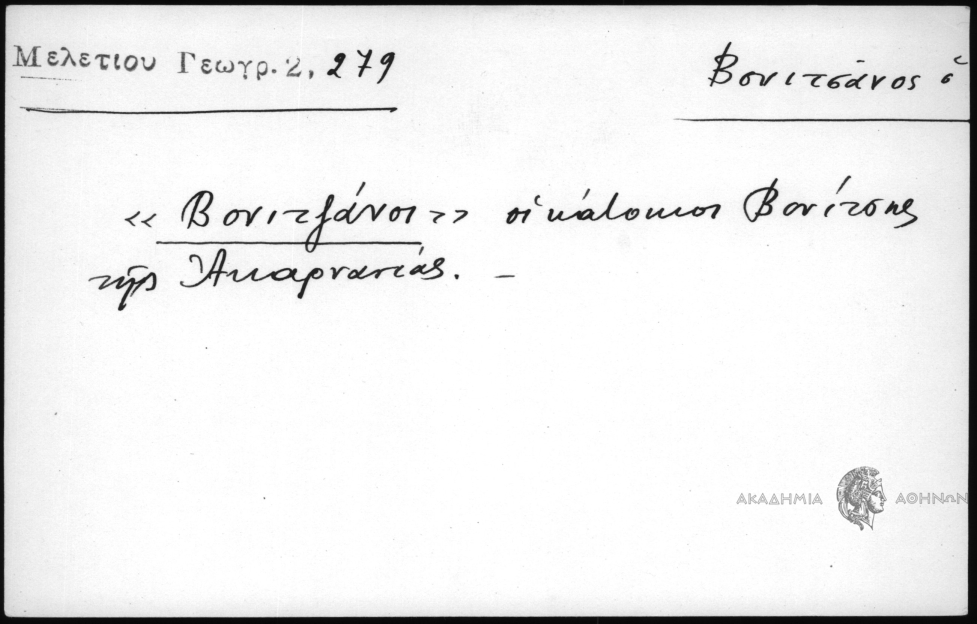 Μελετίου Γεωγρ. 2, 279
Βονιτσάνος ὁ
« Βονιτζάνοι » οἱ κάτοικοι Βονίτσης
τῆς Ἀκαρνανίας. –
ΑΚΑΔΗΜΙΑ ΑΘΗΝΩΝ